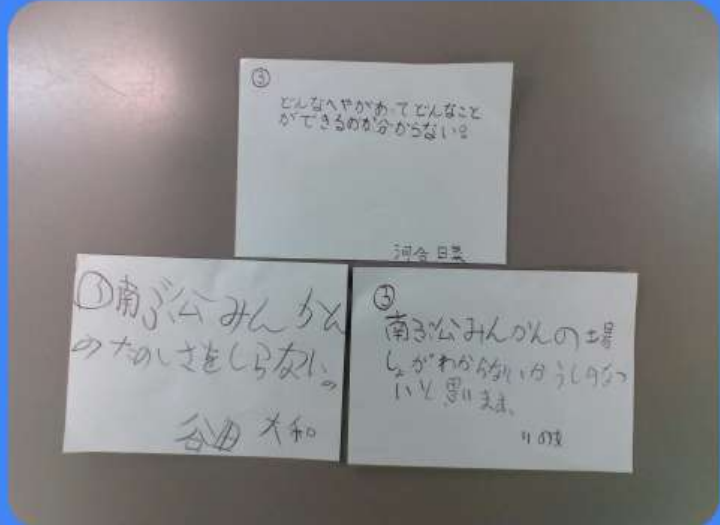 ③
どんなへやがあってどんなこと
ができるのか分からない。
河合 日菜
③南ぶ公みんかん
のたのしさをしらない。
谷田 大和
③
南ぶ公みんかんの場
しょがわからないから
いと思います。